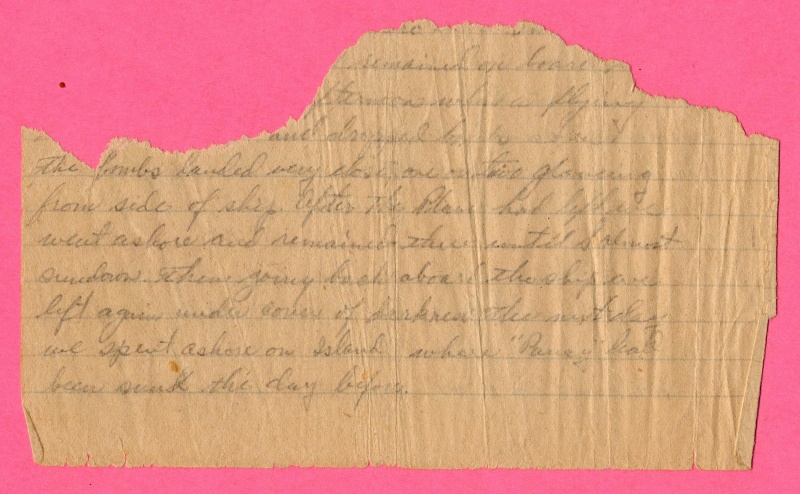 remained on board
afternoon when a flying
and dropped bombs
the bombs landed very close, one or two glancing
from side of ship. After the Plane had left we
went ashore and remained there until almost
sundown. Then going back aboard the ship we
left again under cover of darkness. the next day
we spent ashore on Island where
been sunk the day before.